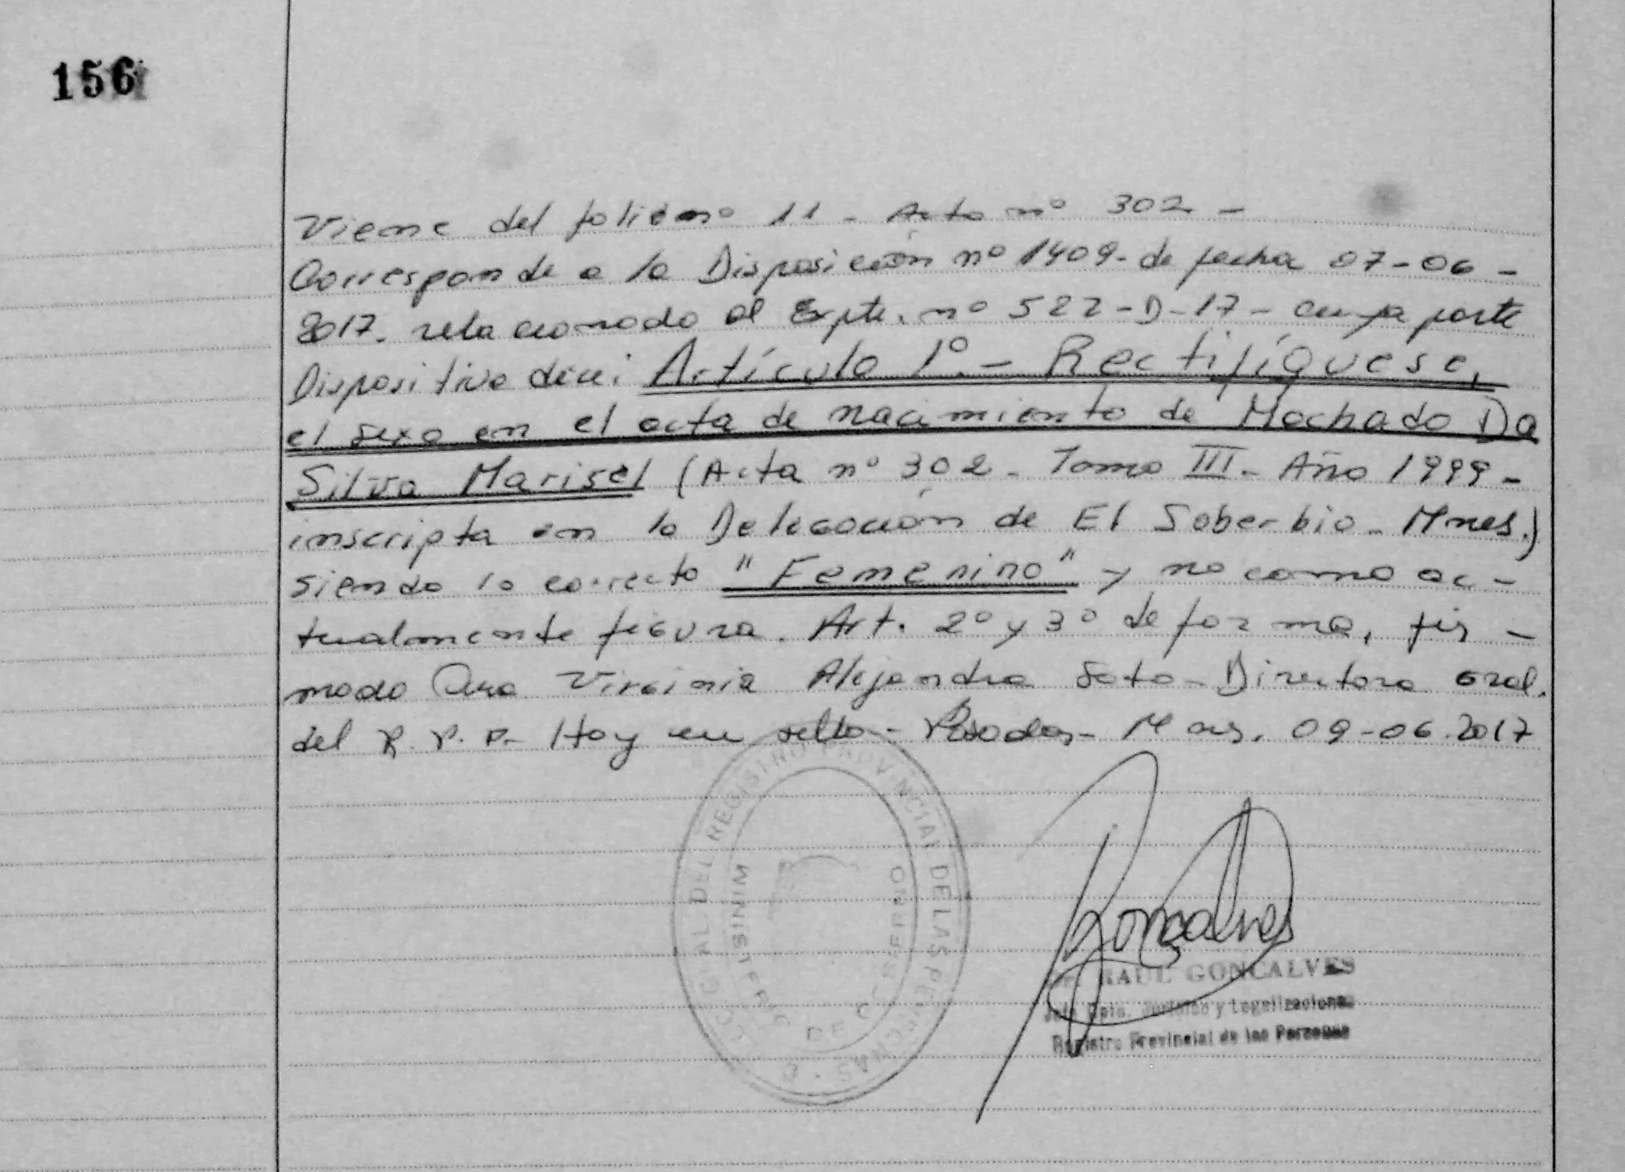 156
Viene del folio nº 11 - Acta nº 302 -
Corresponde a la Disposición nº 1409 - de fecha 07-06-
2017. relacionado al Expte. nº 522-D-17 - cuya parte
Dispositiva dice: Artículo 1º.- Rectifíquese,
el sexo en el acta de nacimiento de Machado Da
Silva Marisel (Acta nº 302 - Tomo III - Año 1999 -
inscripta en la Delegación de El Soberbio - Mnes.)
siendo lo correcto "Femenino" y no como ac-
tualmente figura. Art. 2º y 3º de forma, fir-
mado Virginia Alejandra Soto - Directora Gral.
del R. P. P. - Hoy un sello - Posadas - Mnes. 09-06-2017
DEL REGISTRO PROVINCIAL DE LAS PERSONAS
MINISTERIO DE GOBIERNO
RAUL GONCALVES
Jefe Dpto. Jurídico y Legalizaciones
Registro Provincial de las Personas